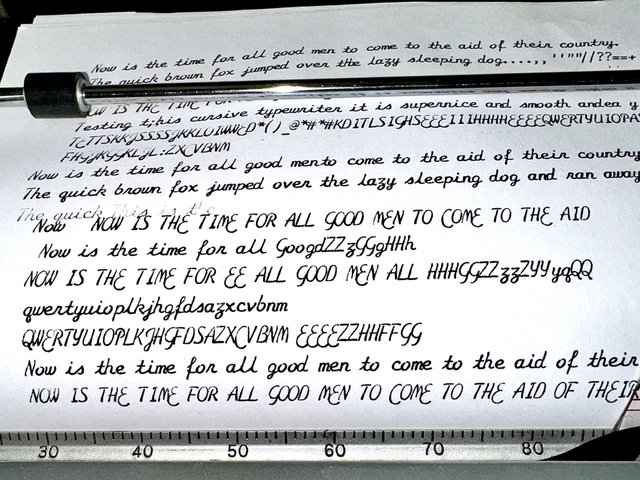 Now is the time for all good men to come to the aid of their country.
The quick brown fox jumped over the lazy sleeping dog....,, ''""//??==+
NOW IS THE TIME FOR
Testing t;his cursive typewriter it is supernice and smooth andea y
TETTSKKJSSSSJKKLOIWWED*()_@*#*#KDITLSIGHSEEEIIIHHHHEEEEQWERTYUIOPA
FHGJKGJKLJL:ZXCVBNM
Now is the time for all good mento come to the aid of their country
The quick brown fox jumped over the lazy sleeping dog and ran away
The quick This is the
Now NOW IS THE TIME FOR ALL GOOD MEN TO COME TO THE AID
Now is the time for all GoogdZZzGGgHHh
NOW IS THE TIME FOR EE ALL GOOD MEN ALL HHHGGZZzzZYYyqQQ
qwertyuioplkjhgfdsazxcvbnm
QWERTYUIOPLKJHGFDSAZXCVBNM EEEEZZHHFFGG
Now is the time for all good men to come to the aid of their
NOW IS THE TIME FOR ALL GOOD MEN TO COME TO THE AID OF THEIR
30 40 50 60 70 80